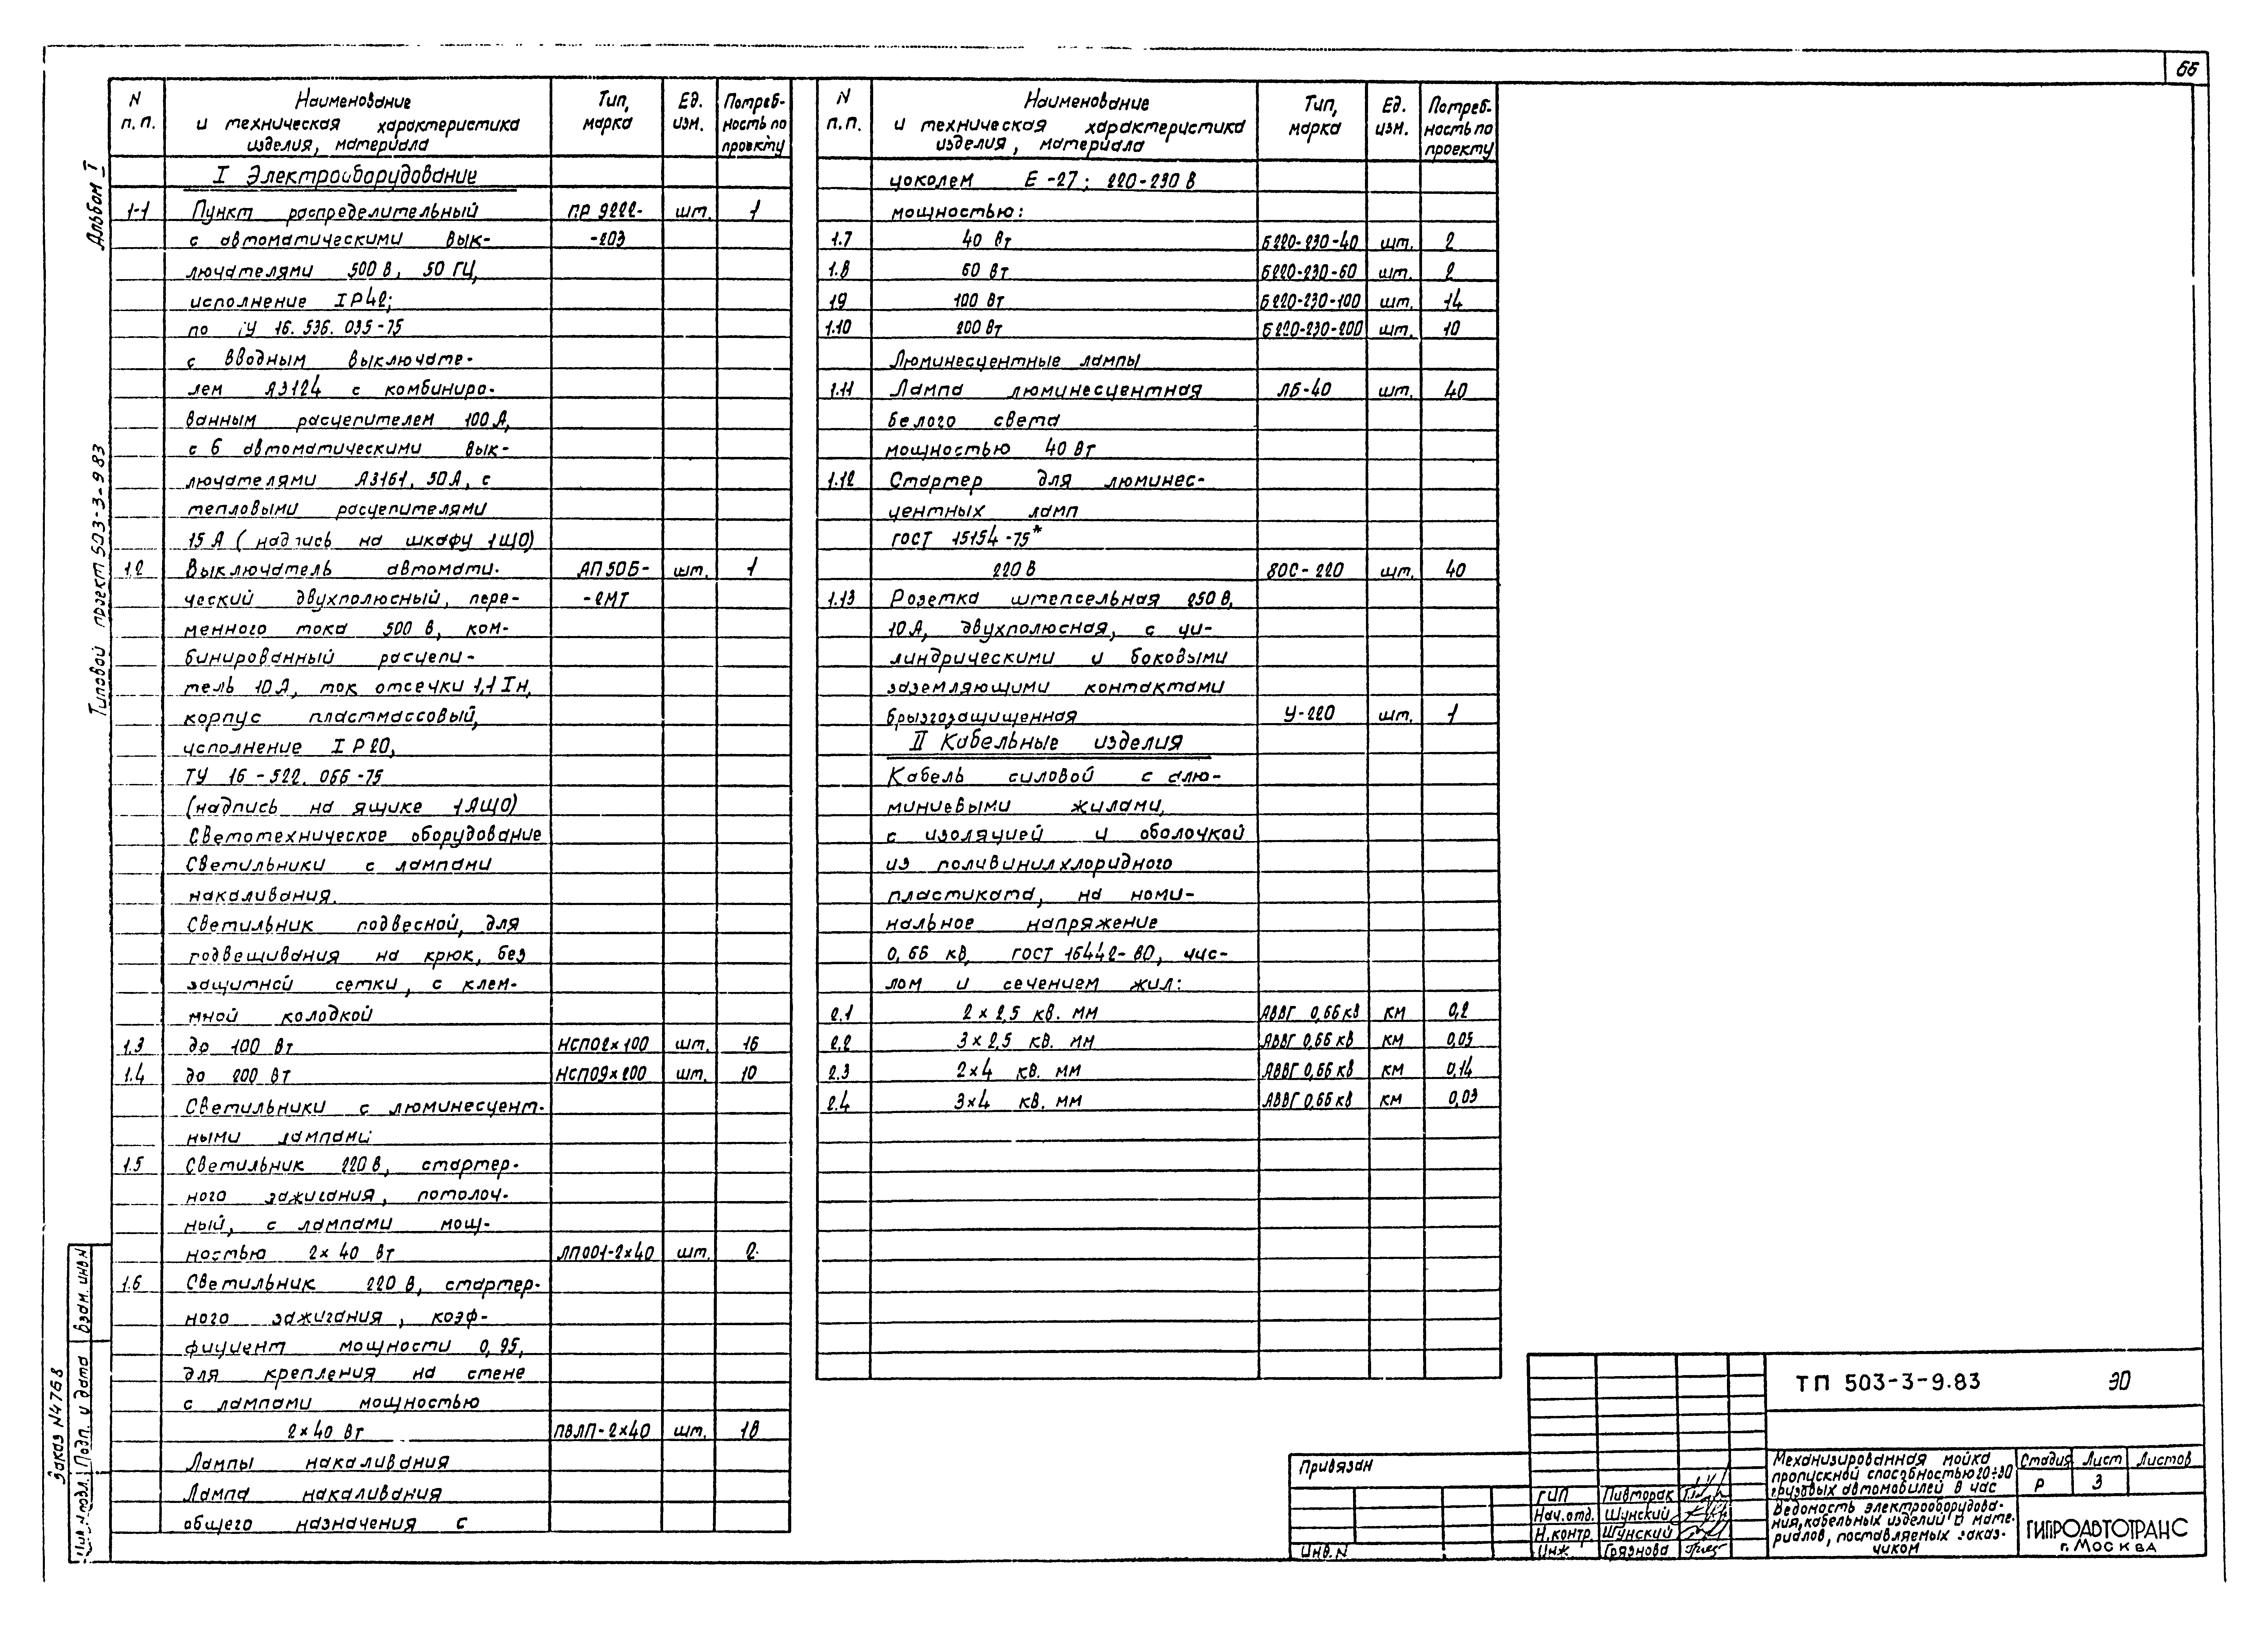 66
Альбом I
Типовой проект 503-3-9.83
Заказ N4768
Подп. и дата
Взам. инв. N
N п.п. Наименование и техническая характеристика изделия, материала Тип, марка Ед. изм. Потреб-ность по проекту
I Электрооборудование
1.1 Пункт распределительный ПР 9222- шт. 1
с автоматическими вык- -203
лючателями 500 В, 50 ГЦ,
исполнение IP42;
по ТУ 16. 536. 035-75
с вводным выключате-
лем А3124 с комбиниро-
ванным расцепителем 100 А,
с 6 автоматическими вык-
лючателями А3161, 50А, с
тепловыми расцепителями
15 А (надпись на шкафу 1ЩО)
1.2 Выключатель автомати- АП50Б- шт. 1
ческий двухполюсный, пере- -2МТ
менного тока 500 В, ком-
бинированный расцепи-
тель 10 А, ток отсечки 1,1 Iн,
корпус пластмассовый,
исполнение IP20,
ТУ 16-522. 066-75
(надпись на ящике 1ЯЩО)
Светотехническое оборудование
Светильники с лампами
накаливания.
Светильник подвесной, для
подвешивания на крюк, без
защитной сетки, с клем-
мной колодкой
1.3 до 100 Вт НСП02×100 шт. 16
1.4 до 200 Вт НСП09×200 шт. 10
Светильники с люминесцент-
ными лампами
1.5 Светильник 220 В, стартер-
ного зажигания, потолоч-
ный, с лампами мощ-
ностью 2×40 Вт ЛПО01-2×40 шт. 2
1.6 Светильник 220 В, стартер-
ного зажигания, коэф-
фициент мощности 0,95,
для крепления на стене
с лампами мощностью
2×40 Вт ПВЛП-2×40 шт. 18
Лампы накаливания
Лампа накаливания
общего назначения с
N п.п. Наименование и техническая характеристика изделия, материала Тип, марка Ед. изм. Потреб-ность по проекту
цоколем Е-27; 220-230 В
мощностью:
1.7 40 Вт Б220-230-40 шт. 2
1.8 60 Вт Б220-230-60 шт. 2
1.9 100 Вт Б220-230-100 шт. 14
1.10 200 Вт Б220-230-200 шт. 10
Люминесцентные лампы
1.11 Лампа люминесцентная ЛБ-40 шт. 40
белого света
мощностью 40 Вт
1.12 Стартер для люминес-
центных ламп
ГОСТ 15154-75*
220 В 80С-220 шт. 40
1.13 Розетка штепсельная 250 В,
10А, двухполюсная, с ци-
линдрическими и боковыми
заземляющими контактами
брызгозащищенная У-220 шт. 1
II Кабельные изделия
Кабель силовой с алю-
миниевыми жилами,
с изоляцией и оболочкой
из поливинилхлоридного
пластиката, на номи-
нальное напряжение
0,66 кВ, ГОСТ 16442-80, чис-
лом и сечением жил:
2.1 2×2,5 кв. мм АВВГ 0,66 кВ км 0,2
2.2 3×2,5 кв. мм АВВГ 0,66 кВ км 0,05
2.3 2×4 кв. мм АВВГ 0,66 кВ км 0,14
2.4 3×4 кв. мм АВВГ 0,66 кВ км 0,03
Привязан
Инв. N
ТП 503-3-9.83 ЭО
Механизированная мойка
пропускной способностью 20÷30
грузовых автомобилей в час
Стадия Лист Листов
Р 3
ГИП Пивторак
Нач.отд. Шунский
Н.контр Шунский
Инж Грязнова
Ведомость электрооборудова-
ния, кабельных изделий и мате-
риалов, поставляемых заказ-
чиком
ГИПРОАВТОТРАНС
г. МОСКВА